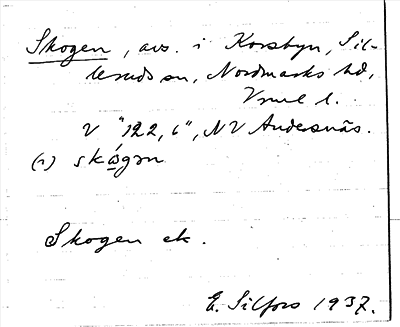 Skogen, avs. i Korsbyn, Sil-
leruds sn, Nordmarks hd,
Vrml l.
V "122,6", NV Andersnäs.
(1) skó̲gən
Skogen ek.
E. Silfors 1937.